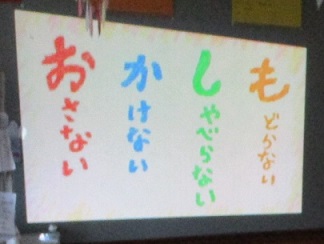 おさない
かけない
しゃべらない
もどらない